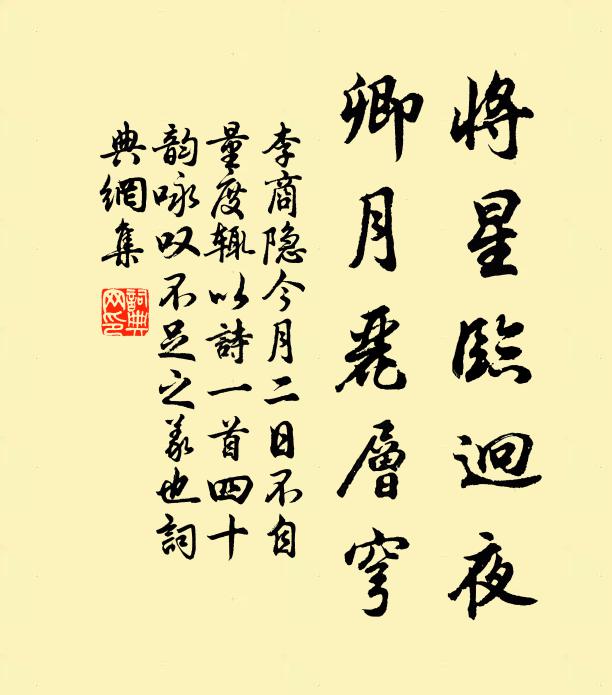 將星臨迥夜
卿月麗層穹
李商隐今月二日不自
量度輒以詩一首四十
韵咏叹不足之義也詞
典網集
詞典
网印